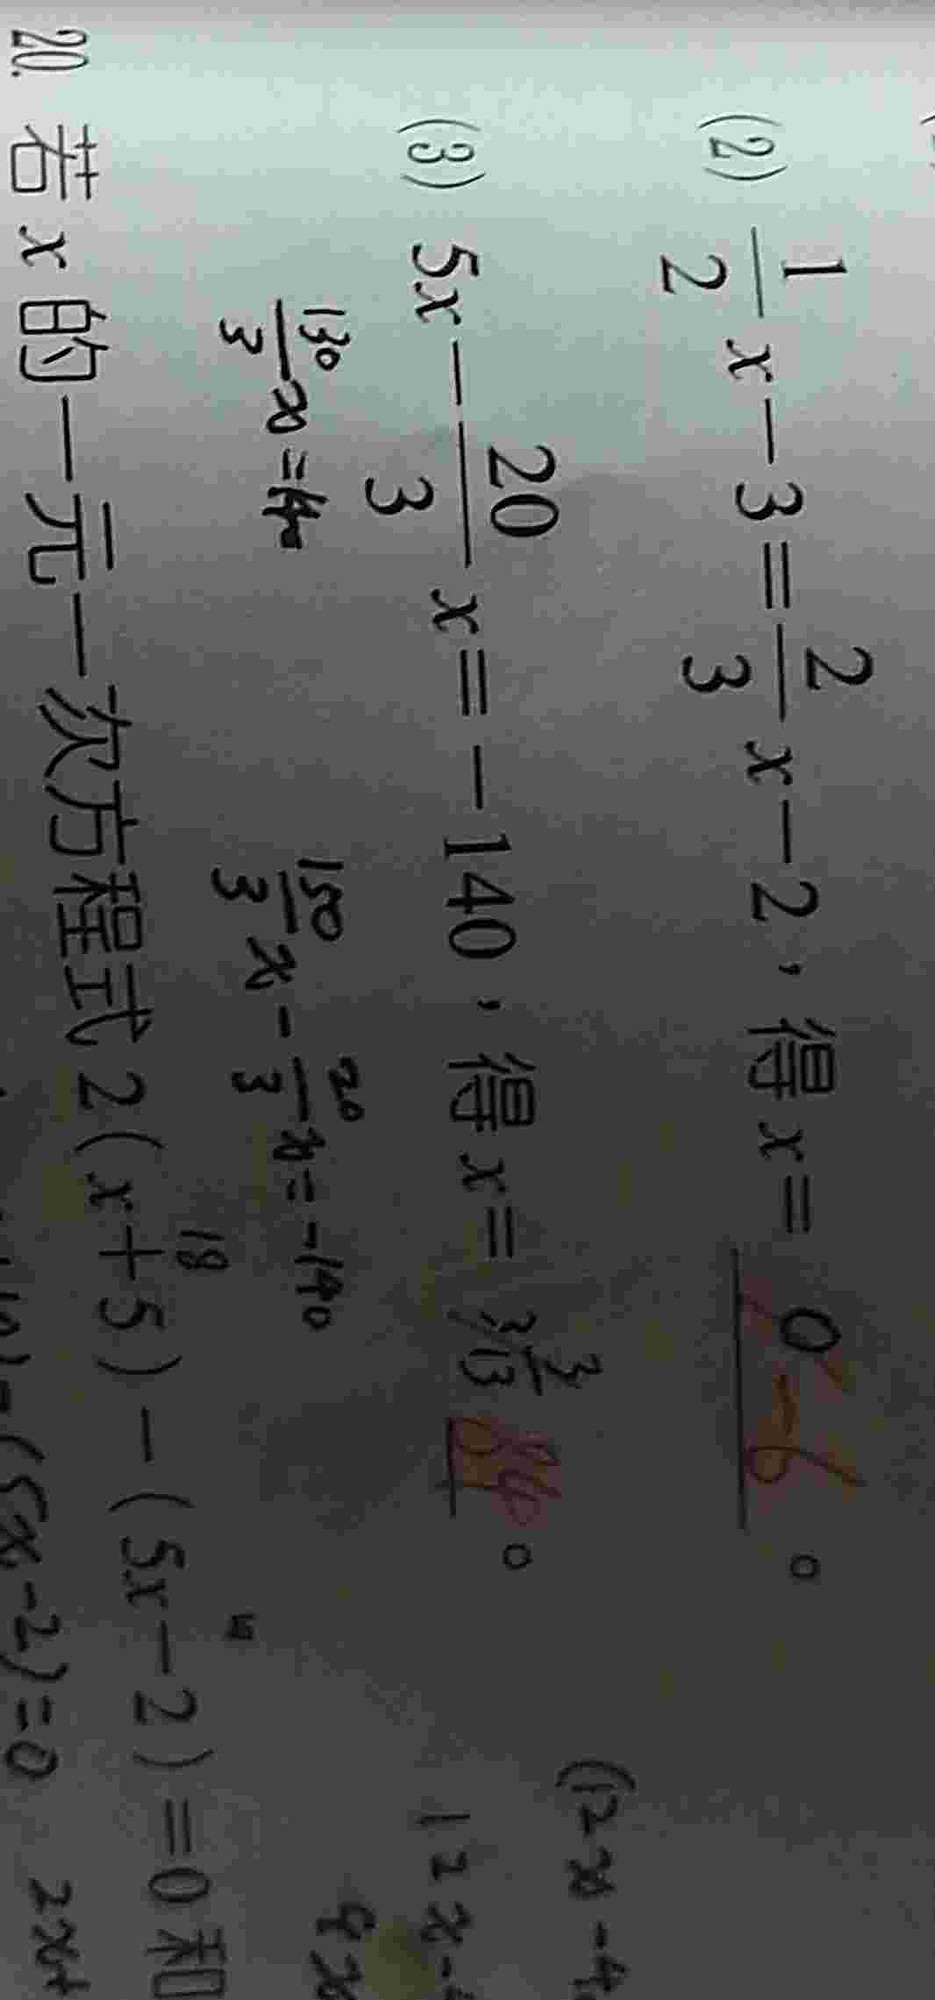 (2) 1/2 x − 3 = 2/3 x − 2，得 x = 0 -6 。
(3) 5x − 20/3 x = −140，得 x = 3 3/13 84 。
130/3 x = 140
150/3 x - 20/3 x = -140
18
(12x - 4
12x -
9x
20. 若 x 的一元一次方程式 2(x+5) − (5x−2) = 0 和
(5x-2)=0 2x+